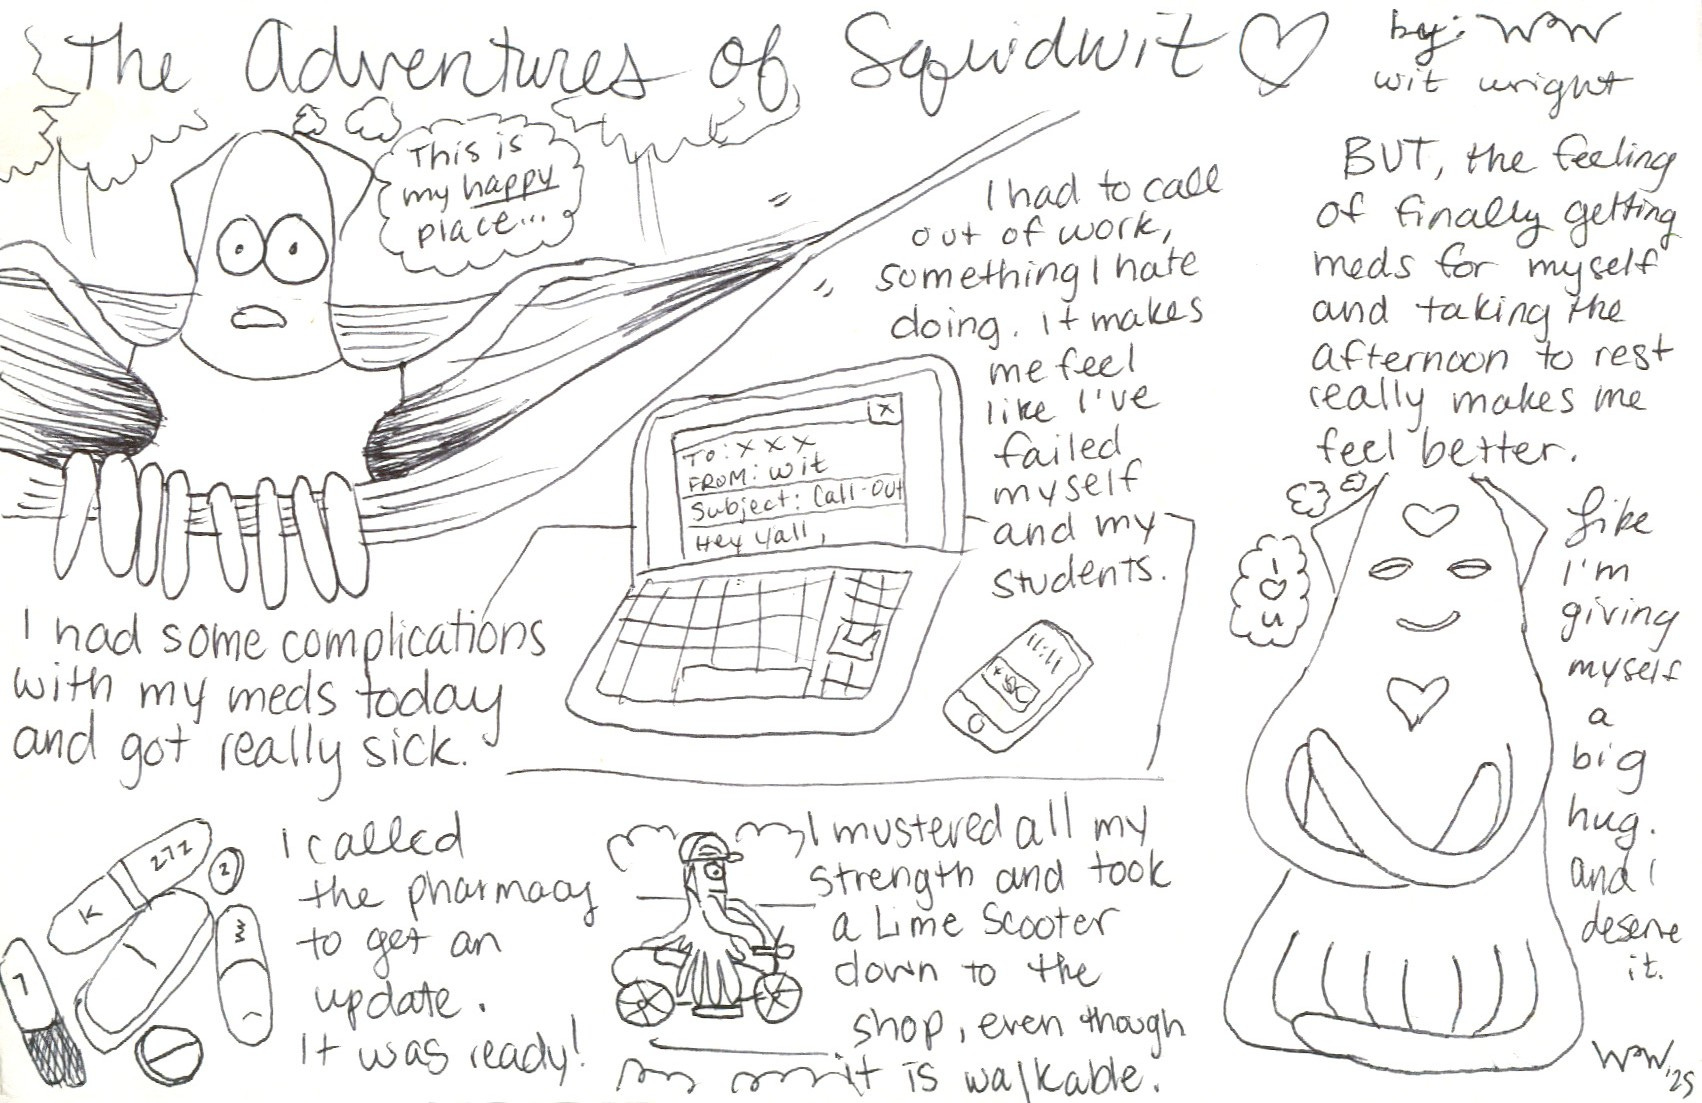 The Adventures of Squidwit
by: WW
wit wright
This is
my happy
place...
I had some complications
with my meds today
and got really sick.
I had to call
out of work,
something I hate
doing. It makes
me feel
like I've
failed
myself
and my
students.
X
To: X X X
FROM: wit
Subject: Call-Out
Hey y'all,
11:11
I called
the pharmacy
to get an
update.
It was ready!
K 272
2
7
I mustered all my
strength and took
a Lime Scooter
down to the
shop, even though
it is walkable.
BUT, the feeling
of finally getting
meds for myself
and taking the
afternoon to rest
really makes me
feel better.
I
♡
u
Like
I'm
giving
myself
a
big
hug.
and I
deserve
it.
WW '25